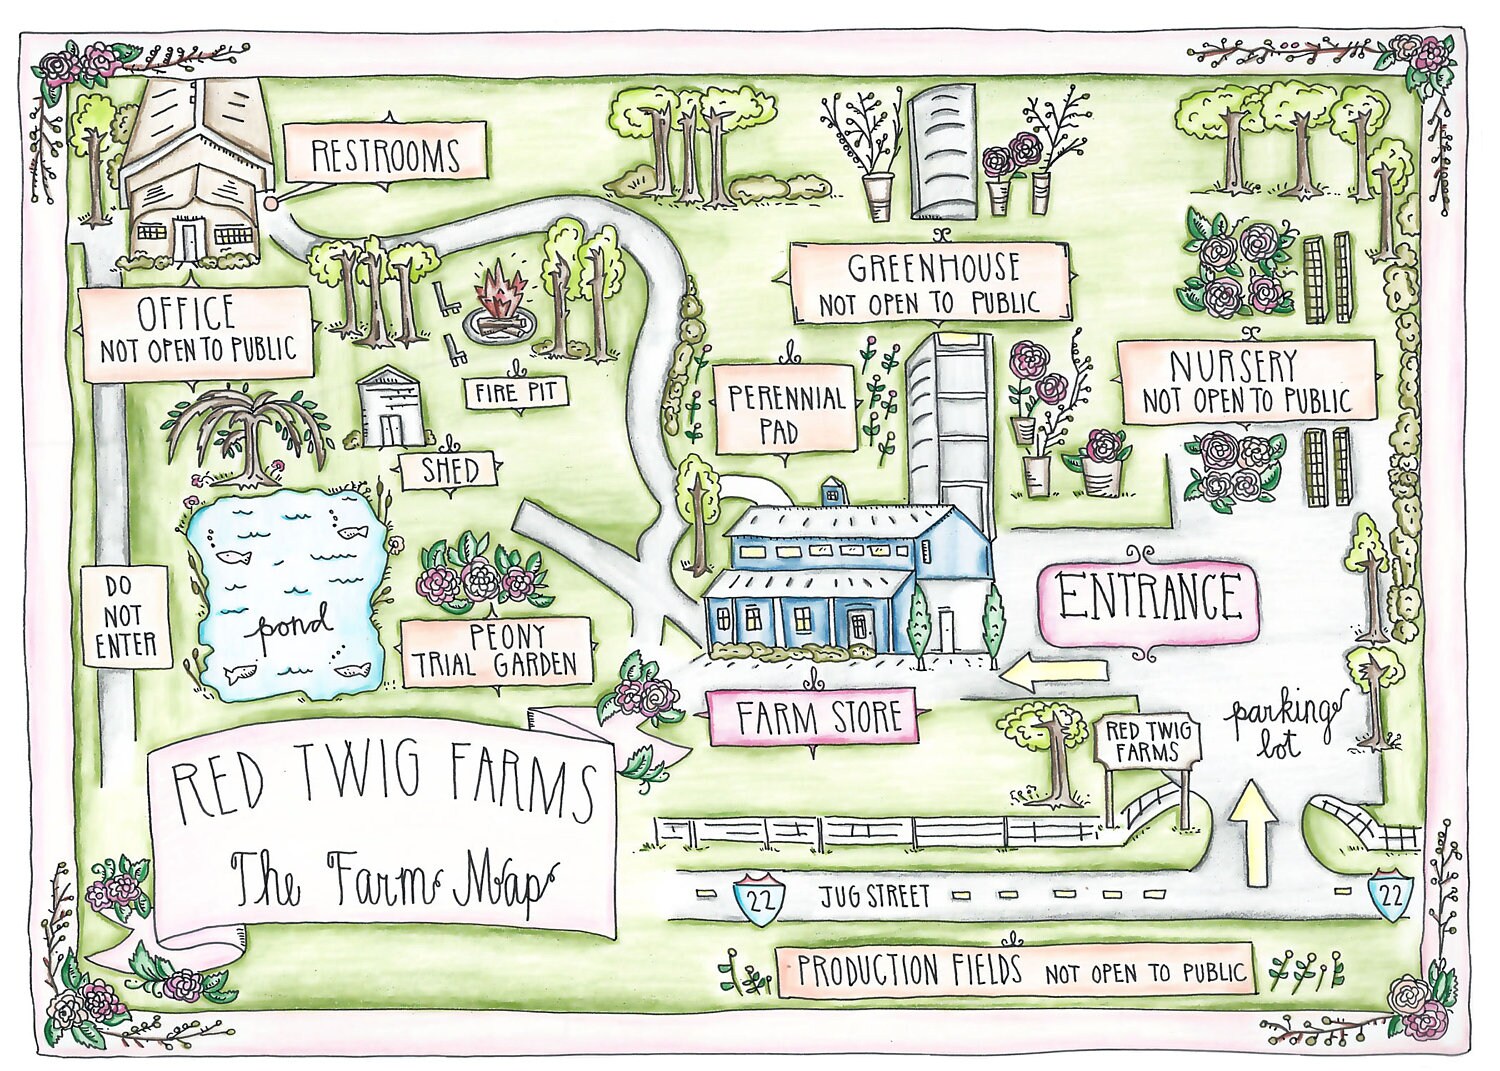 RESTROOMS
OFFICE
NOT OPEN TO PUBLIC
FIRE PIT
SHED
GREENHOUSE
NOT OPEN TO PUBLIC
PERENNIAL
PAD
NURSERY
NOT OPEN TO PUBLIC
DO
NOT
ENTER
pond
PEONY
TRIAL GARDEN
ENTRANCE
FARM STORE
RED TWIG
FARMS
parking
lot
RED TWIG FARMS
The Farm Map
22
JUG STREET
22
PRODUCTION FIELDS NOT OPEN TO PUBLIC